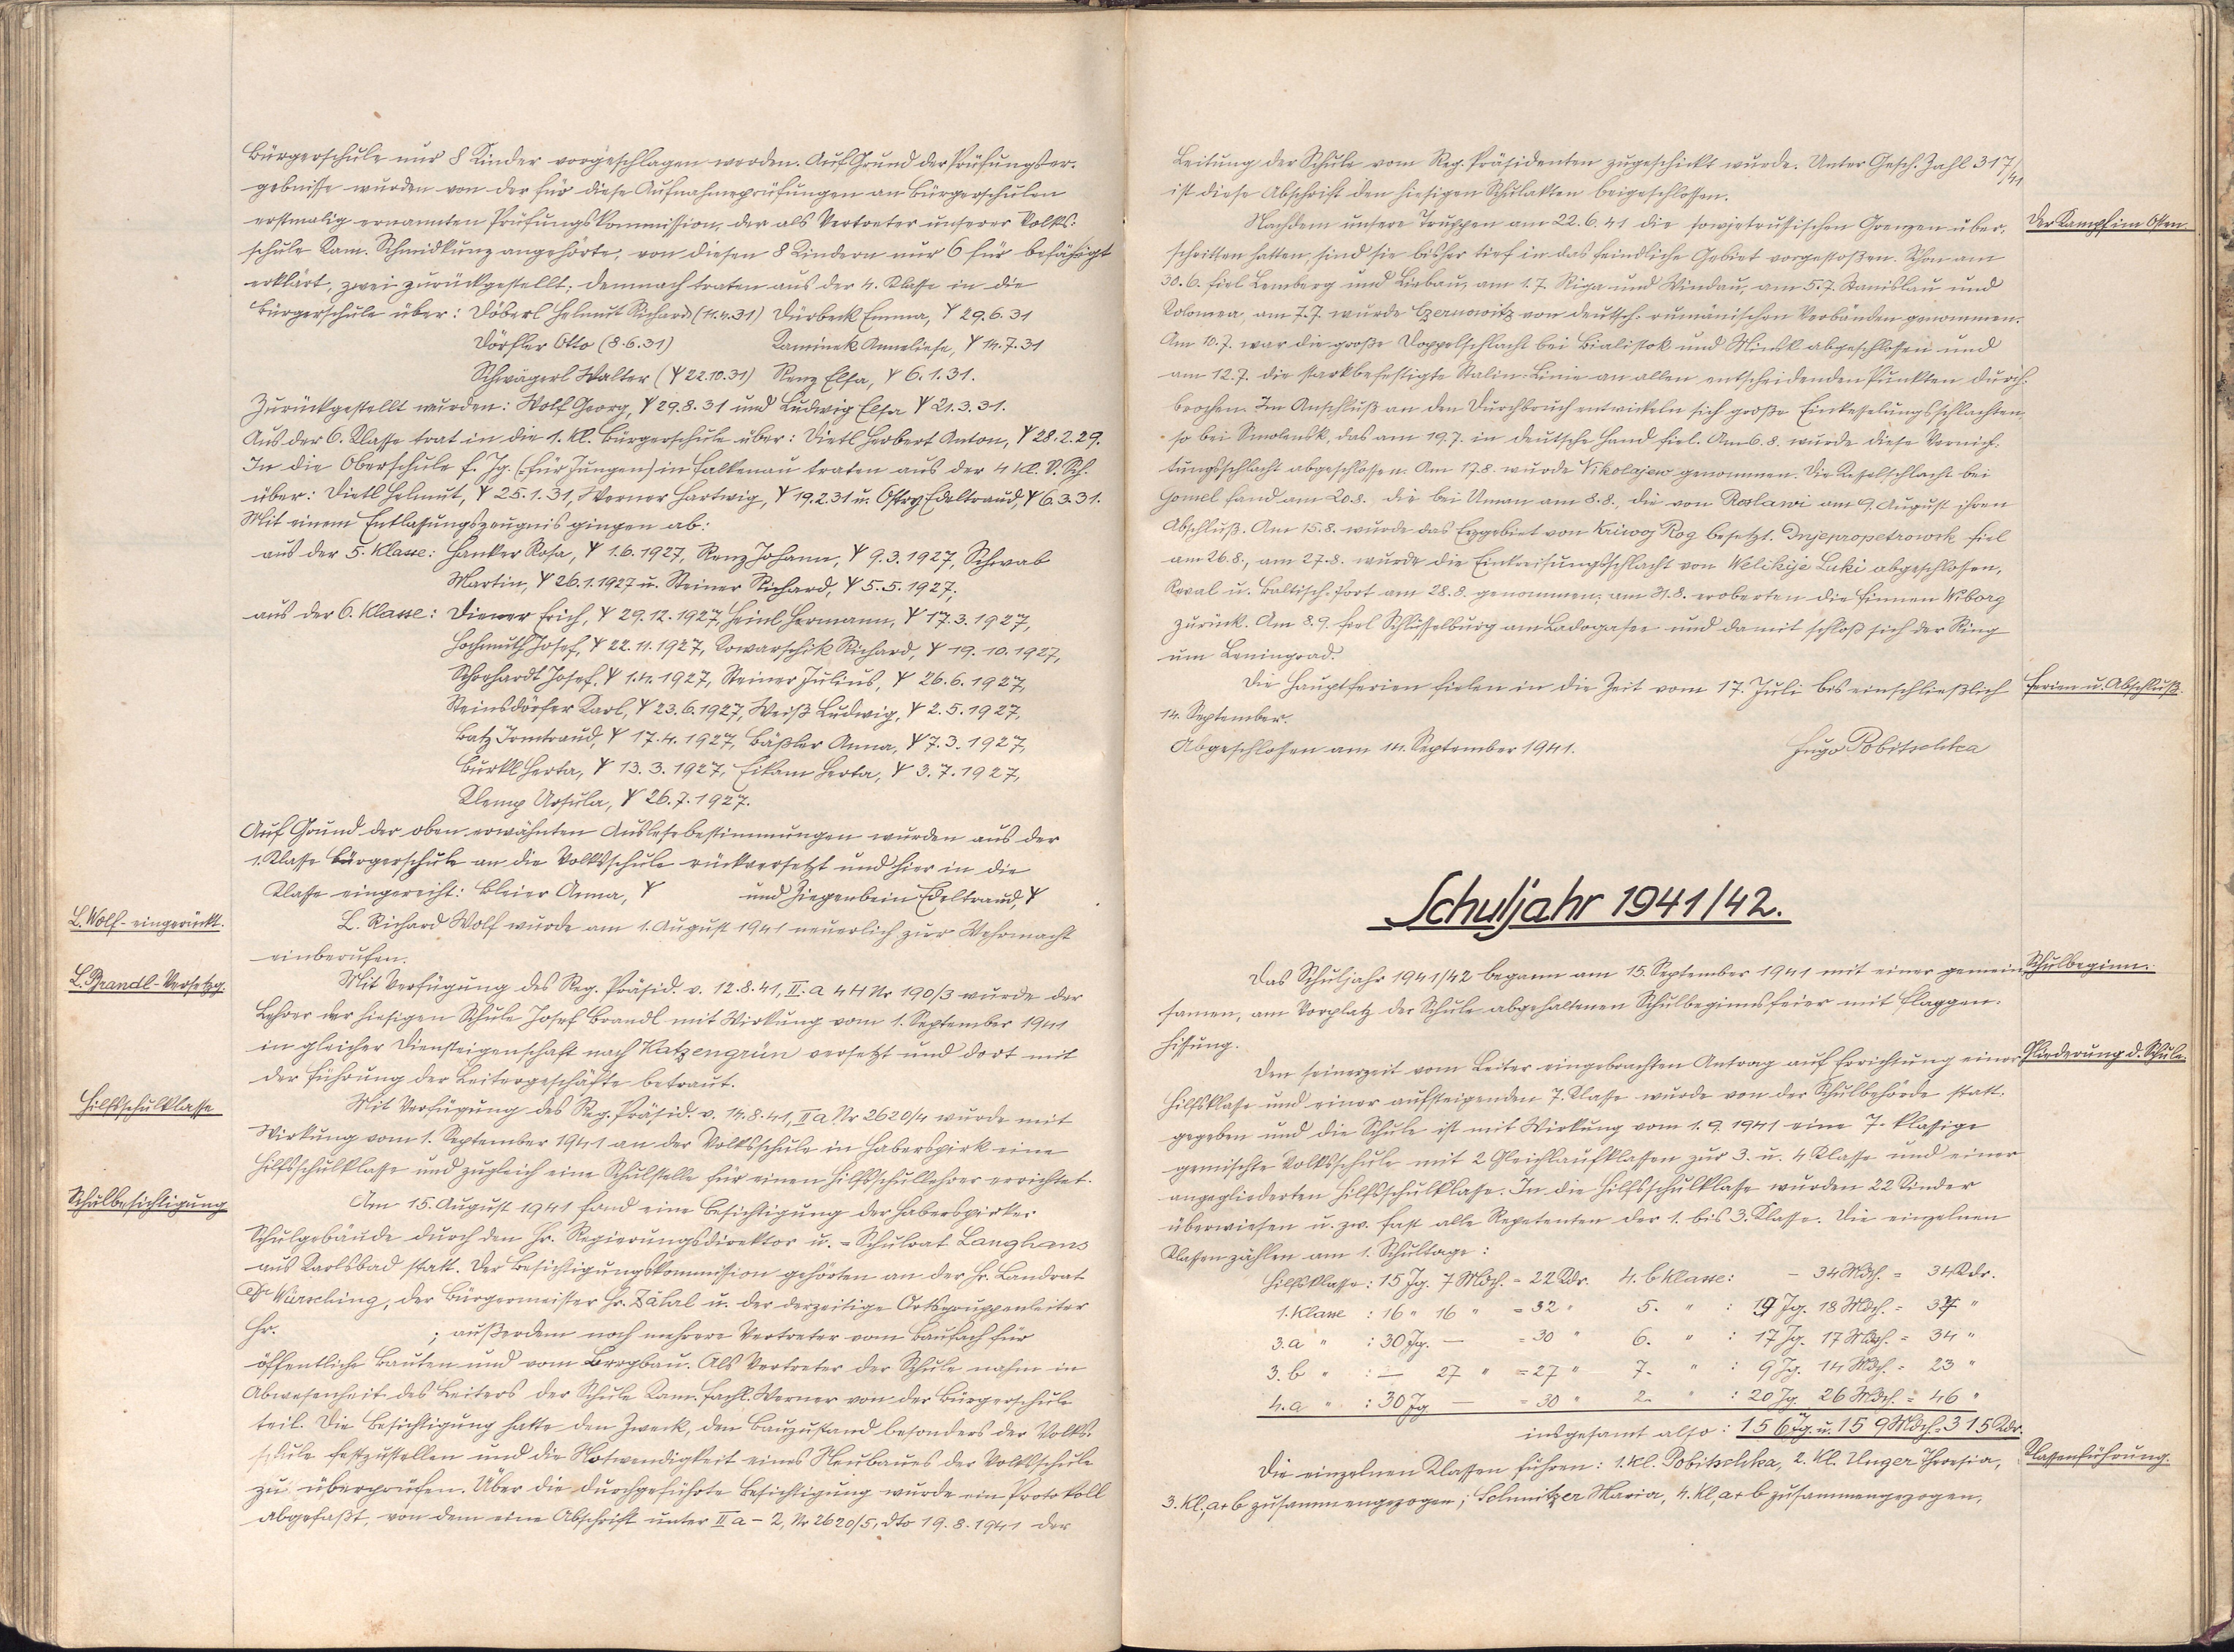 Bürgerschule nur 8 Kinder vorgeschlagen werden. Auf Grund der Prüfungser-
gebnisse wurden von der für diese Aufnahmeprüfungen an Bürgerschulen
erstmalig ernannten Prüfungskommission, der als Vertreter unserer Volks-
schule Kam. Schmidkunz angehörte, von diesen 8 Kindern nur 6 für befähigt
erklärt, zwei zurückgestellt; demnach traten aus der 4. Klasse in die
Bürgerschule über: Döberl Helmut Richard (11.4.31) Dürbeck Emma, Y 29.6.31
Dörfler Otto (8.6.31) Kaminek Anneliese, Y 14.7.31
Schwägerl Walter (Y 22.10.31) Renz Elsa, Y 6.1.31.
Zurückgestellt wurden: Wolf Georg, Y 29.8.31 und Ludwig Elsa Y 21.3.31.
Aus der 6. Klasse trat in die 1. Kl. Bürgerschule über: Dietl Herbert Anton, Y 28.2.29.
In die Oberschule f. Jg. (für Jungen) in Falkenau traten aus der 4 Kl. V. Sch.
über: Dietl Helmut, Y 25.1.31, Werner Hartwig, Y 19.2.31 u. Ostry Edeltraud, Y 6.3.31.
Mit einem Entlassungszeugnis gingen ab:
aus der 5. Klasse: Hanker Rosa, Y 1.6.1927, Renz Johann, Y 9.3.1927, Schwab
Martin, Y 26.1.1927 u. Steiner Richard, Y 5.5.1927;
aus der 6. Klasse: Diener Erich, Y 29.12.1927, Heinl Hermann, Y 17.3.1927,
Hochmuth Josef, Y 22.11.1927, Kowarschik Richard, Y 19.10.1927,
Schrhardt Josef, Y 1.4.1927, Steiner Julius, Y 26.6.1927,
Steinsdörfer Karl, Y 23.6.1927, Weiß Ludwig, Y 2.5.1927,
Batz Irmtraud, Y 17.4.1927, Bäßler Anna, Y 7.3.1927,
Bürkl Herta, Y 13.3.1927, Eikam Herta, Y 3.7.1927,
Klemp Ursula, Y 26.7.1927.
Auf Grund der oben erwähnten Auslesebestimmungen wurden aus der
1. Klasse Bürgerschule an die Volksschule rückversetzt und hier in die
Klasse eingereiht: Bleier Anna, Y und Ziegenbein Edeltraud, Y .
L. Wolf - eingerückt.
L. Richard Wolf wurde am 1. August 1941 neuerlich zur Wehrmacht
einberufen.
L. Brandl - Versetzg.
Mit Verfügung des Reg. Präsid. v. 12.8.41, II. a 4 H Nr 190/3 wurde der
Lehrer der hiesigen Schule Josef Brandl mit Wirkung vom 1. September 1941
in gleicher Diensteigenschaft nach Katzengrün versetzt und dort mit
der Führung der Leitergeschäfte betraut.
Hilfsschulklasse
Mit Verfügung des Reg. Präsid. v. 14.8.41, II a Nr 2620/4 wurde mit
Wirkung vom 1. September 1941 an der Volksschule in Haberspirk eine
Hilfsschulklasse und zugleich eine Schulstelle für einen Hilfsschullehrer errichtet.
Schulbesichtigung
Am 15. August 1941 fand eine Besichtigung der Haberspirker
Schulgebäude durch den Hr. Regierungsdirektor u. - Schulrat Langhans
aus Karlsbad statt. Der Besichtigungskommission gehörten an der Hr. Landrat
Dr Würsching, der Bürgermeister Hr. Zähal u. der derzeitige Ortsgruppenleiter
Hr. ; außerdem noch mehrere Vertreter vom Baufach für
öffentliche Bauten und vom Bergbau. Als Vertreter der Schule nahm in
Abwesenheit des Leiters der Schule Kam. Fachl. Werner von der Bürgerschule
teil. Die Besichtigung hatte den Zweck, den Bauzustand besonders der Volks-
schule festzustellen und die Notwendigkeit eines Neubaues der Volksschule
zu überprüfen. Über die durchgeführte Besichtigung wurde ein Protokoll
abgefaßt, von dem eine Abschrift unter II a - 2, Nr 2620/5, dto 19.8.1941 der
Leitung der Schule vom Reg. Präsidenten zugeschickt wurde. Unter Gesch. Zahl 317/41
ist diese Abschrift den hiesigen Schulakten beigeschlossen.
Der Kampf im Osten.
Nachdem unsere Truppen am 22.6.41 die sowjetrussischen Grenzen über-
schritten hatten, sind sie bisher tief in das feindliche Gebiet vorgestoßen. Schon am
30.6. fiel Lemberg und Liebau, am 1.7. Riga und Windau, am 5.7. Stanislau und
Kolomea, am 7.7. wurde Czernowitz von deutsch-rumänischen Verbänden genommen.
Am 10.7. war die große Doppelschlacht bei Bialistok und Minsk abgeschlossen und
am 12.7. die starkbefestigte Stalin-Linie an allen entscheidenden Punkten durch-
brochen. Im Anschluß an den Durchbruch entwickeln sich große Einkesselungsschlachten,
so bei Smolensk, das am 19.7. in deutsche Hand fiel. Am 6.8. wurde diese Vernich-
tungsschlacht abgeschlossen. Am 17.8. wurde Nikolajew genommen. Die Kesselschlacht bei
Gomel fand am 20.8., die bei Uman am 8.8., die von Roslawi am 9. August ihren
Abschluß. Am 15.8. wurde das Erzgebiet von Kriwoj Rog besetzt. Dnjepropetrowsk fiel
am 26.8., am 27.8. wurde die Einkreisungsschlacht von Welikije Luki abgeschlossen,
Reval u. Baltisch-Port am 28.8. genommen; am 31.8. eroberten die Finnen Wiborg
zurück. Am 8.9. fiel Schlüsselburg am Ladogasee und damit schloß sich der Ring
um Leningrad.
Ferien u. Abschluß.
Die Hauptferien fielen in die Zeit vom 17. Juli bis einschließlich
14. September.
Abgeschlossen am 14. September 1941. Hugo Pobitschka
Schuljahr 1941/42.
Schulbeginn.
Das Schuljahr 1941/42 begann am 15. September 1941 mit einer gemein
samen, am Vorplatz der Schule abgehaltenen Schulbeginnsfeier mit Flaggen-
hissung.
Gliederung d. Schule.
Den seinerzeit vom Leiter eingebrachten Antrag auf Errichtung einer
Hilfsklasse und einer aufsteigenden 7. Klasse wurde von der Schulbehörde statt-
gegeben und die Schule ist mit Wirkung vom 1.9.1941 eine 7-klassige
gemischte Volksschule mit 2 Gleichlaufklassen zur 3. u. 4. Klasse und einer
angegliederten Hilfsschulklasse. In die Hilfsschulklasse wurden 22 Kinder
überwiesen u. zw. fast alle Repetenten der 1. bis 3. Klasse. Die einzelnen
Klassen zählen am 1. Schultage:
Hilfsklasse: 15 Jg. 7 Mdch. = 22 Kdr. 4. b Klasse: - 34 Mdch. = 34 Kdr.
1. Klasse : 16 " 16 " = 32 " 5. " : 19 Jg. 18 Mdch. = 37 "
3. a " : 30 Jg. — = 30 " 6. " : 17 Jg. 17 Mdch. = 34 "
3. b " : — 27 " = 27 " 7. " : 9 Jg. 14 Mdch. = 23 "
4. a " : 30 Jg — = 30 " 2. " : 20 Jg. 26 Mdch. = 46 "
insgesamt also: 156 Jg. u. 159 Mdch. = 315 Kdr.
Klassenführung.
Die einzelnen Klassen führen: 1. Kl. Pobitschka, 2. Kl. Unger Theresia,
3. Kl, a + b zusammengezogen; Schmitzer Maria, 4. Kl, a + b zusammengezogen,